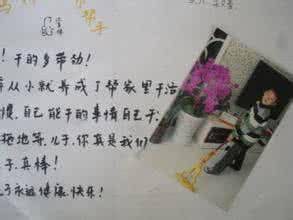 帮手
！干的多带劲！
从小就养成了帮家里干活
惯，自己能干的事情自己干，
拖地等，儿子，你真是我们
子，真棒！
永远健康、快乐！